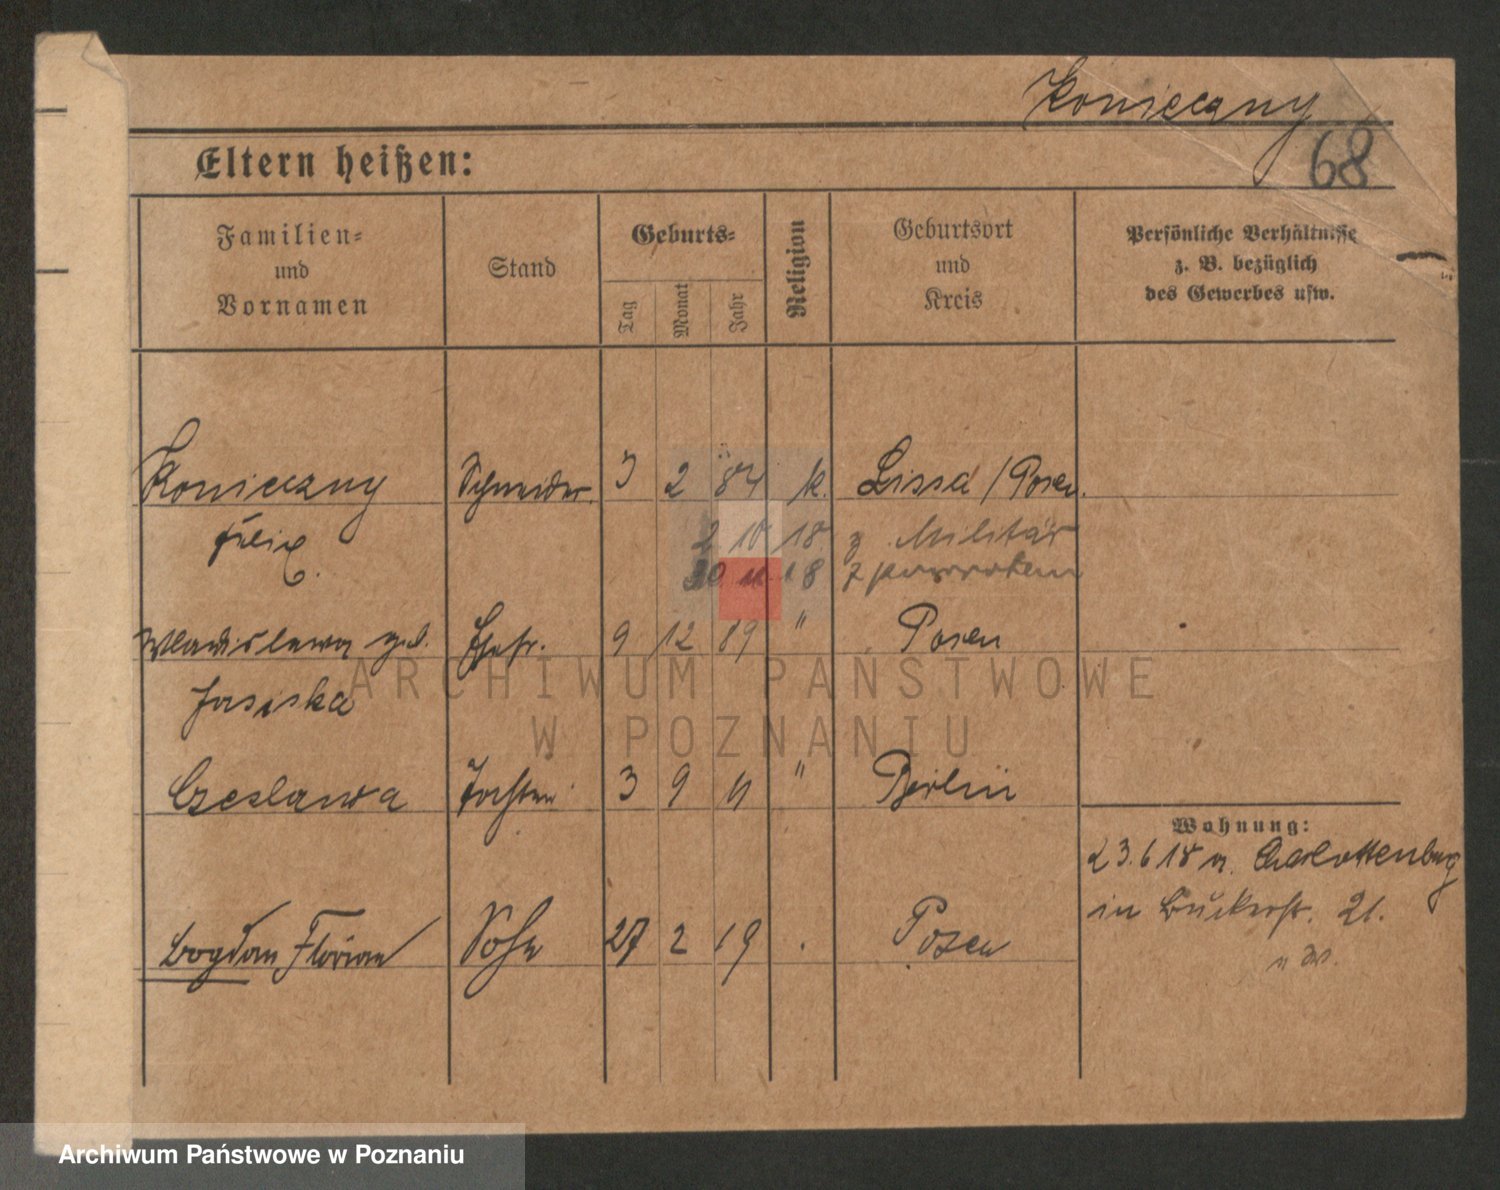 Konieczny
68
Eltern heißen:
Familien- und Vornamen
Stand
Geburts-
Tag
Monat
Jahr
Religion
Geburtsort und Kreis
Persönliche Verhältnisse z. B. bezüglich des Gewerbes usw.
Konieczny Schneider 3 2 84 k. Lissa / Posen
Felix. 2 10 18 z Militär
30 11 18 z
Wladislawa geb. Ehefr. 9 12 89 " Posen
Jasiska
Czeslawa Tochter 3 9 11 " Berlin
Wohnung:
23.6 18 n. Charlottenburg
in 21.
Bogdan Florian Sohn 27 2 19 . Posen
ARCHIWUM PAŃSTWOWE
W POZNANIU
Archiwum Państwowe w Poznaniu